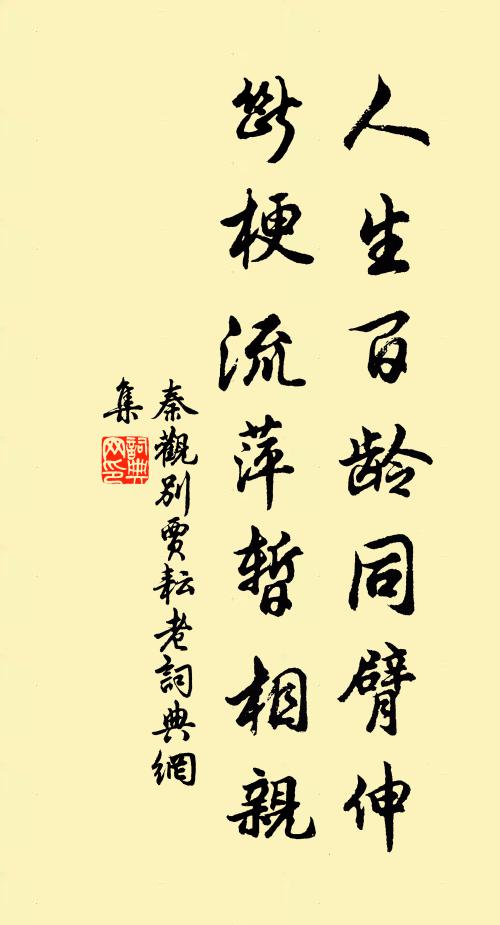 人生百龄同臂伸
断梗流萍暫相親
秦觀別賈耘老詞典網
集
詞典
网印